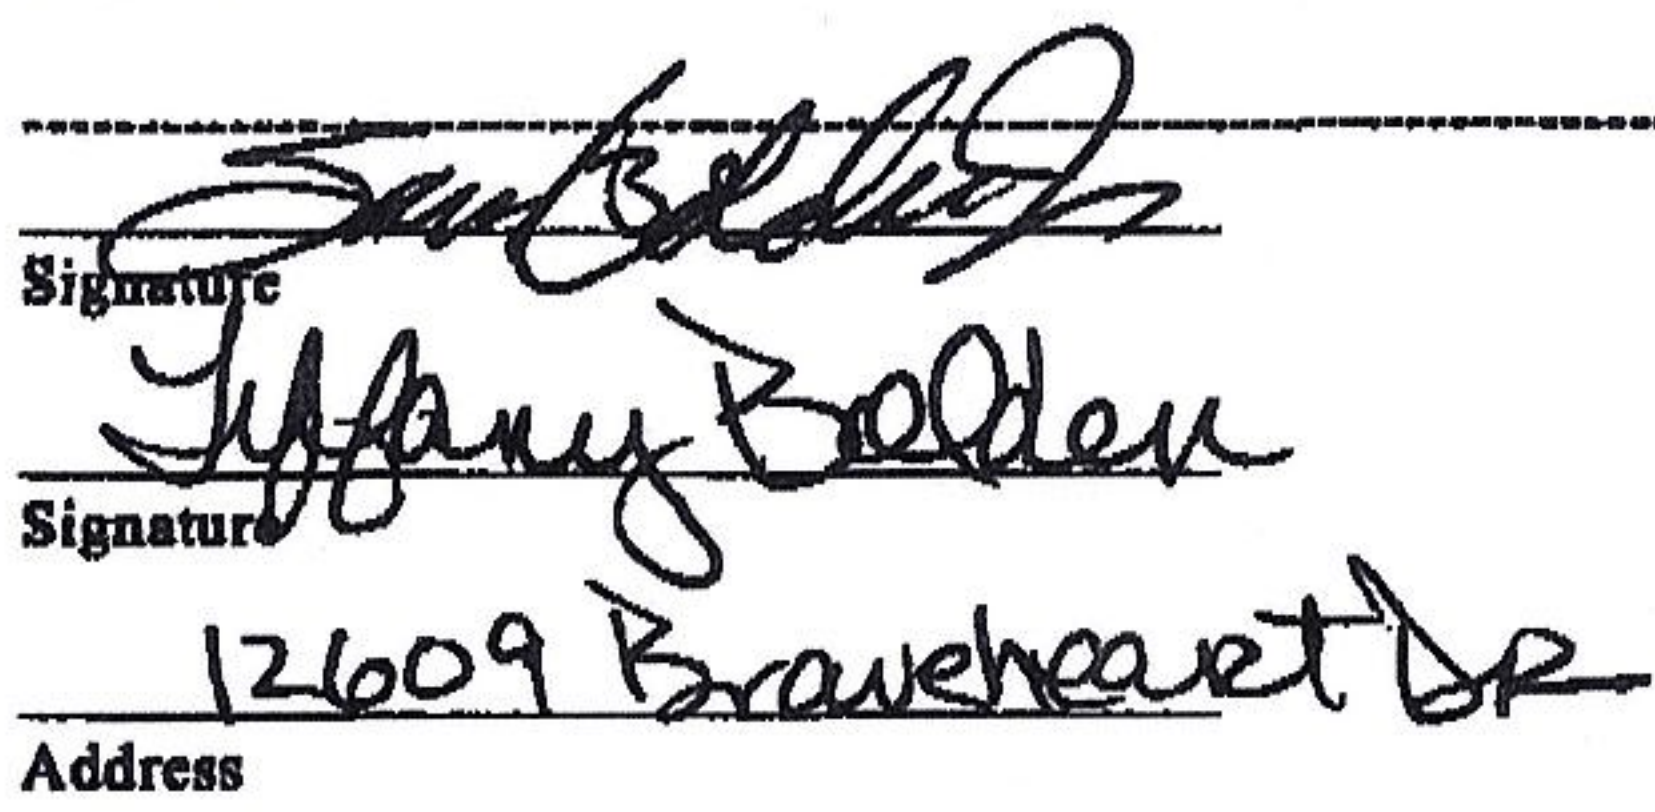 Sam Bolden Jr
Signature
Tiffany Bolden
Signature
12609 Braveheart DR
Address